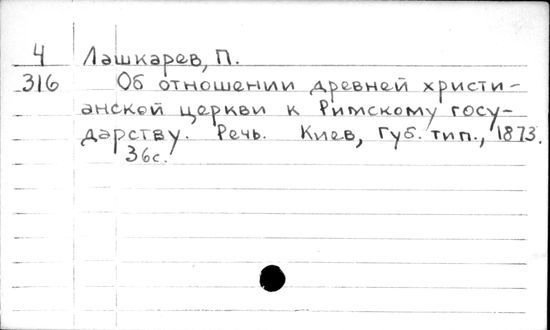 4 Лашкарев, П.
316 Об отношении древней христи-
анской церкви к Римскому госу-
дарству. Речь. Киев, Губ. тип., 1873.
36с.